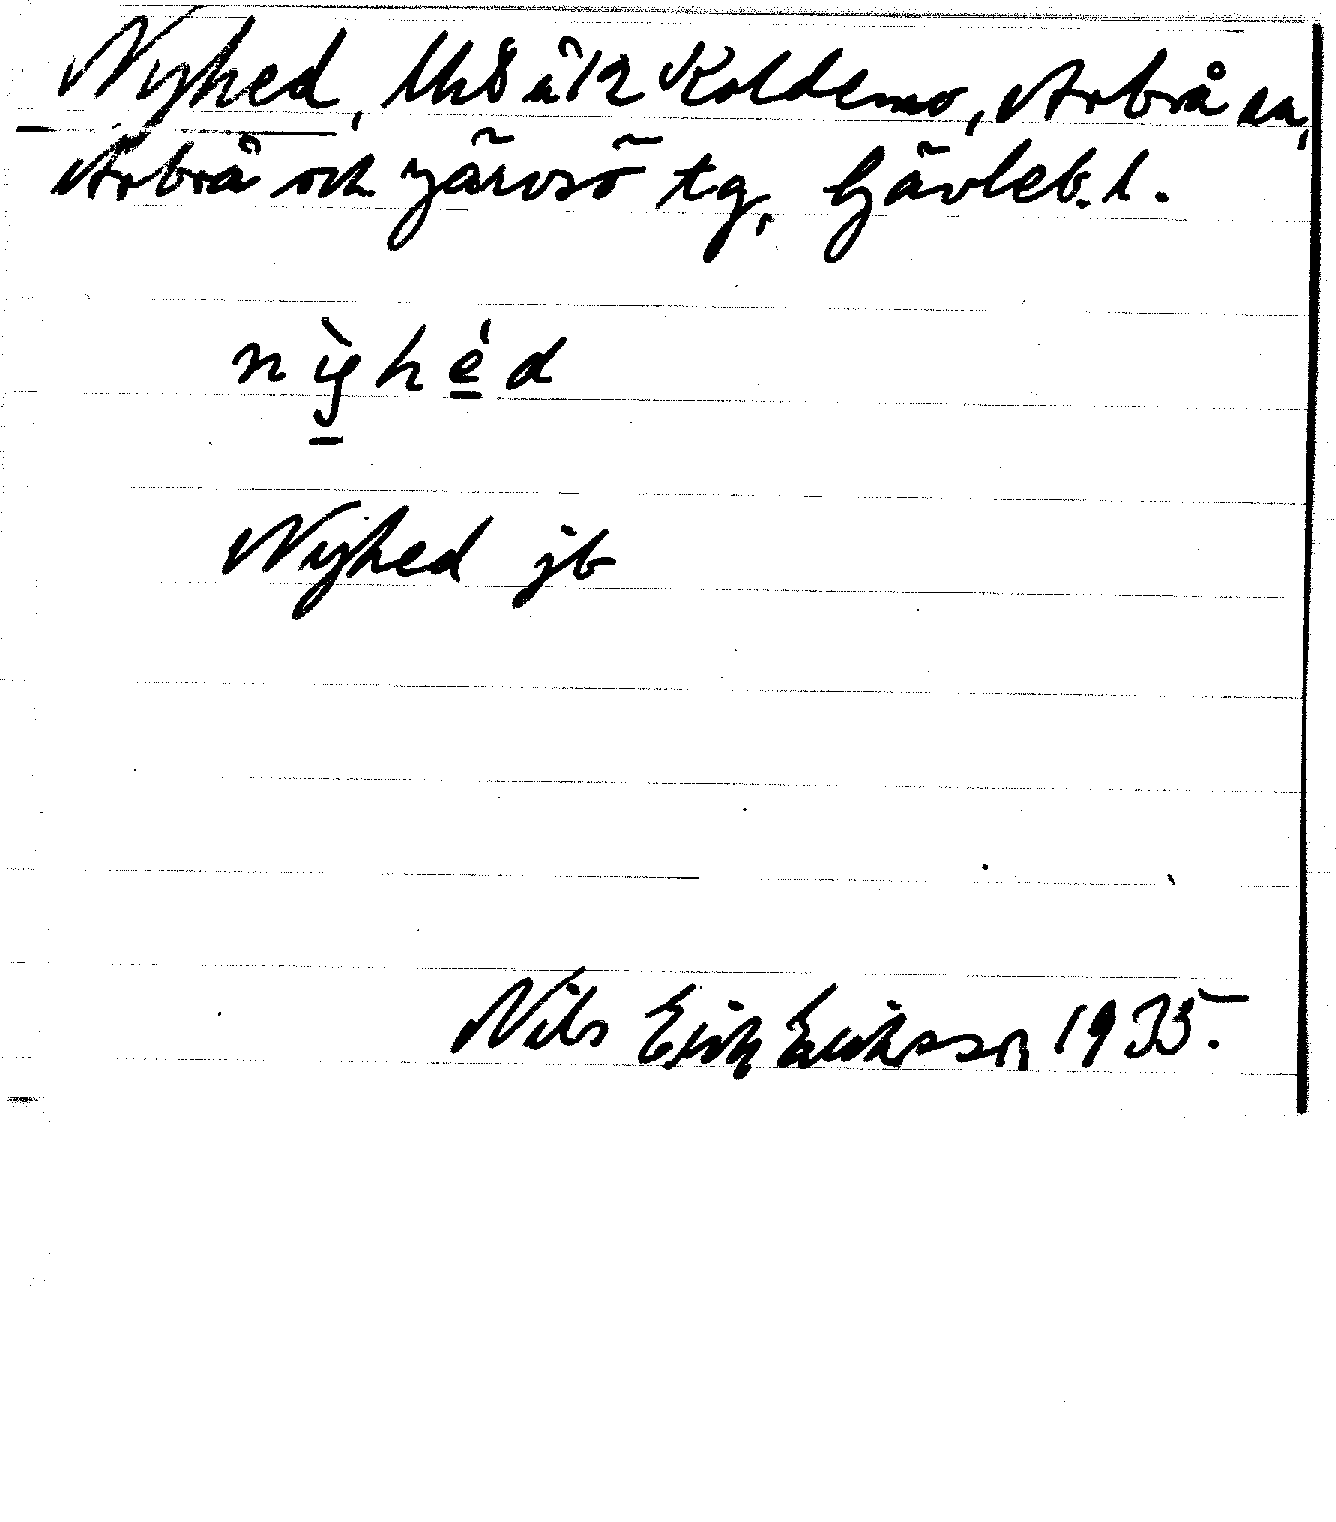 Nyhed, 1/4 8 å 12 Koldemo, Arbrå sn,
Arbrå och Järvsö tg, Gävleb. l.
nỳhéd
Nyhed jb
Nils Erik Eriksson 1935.